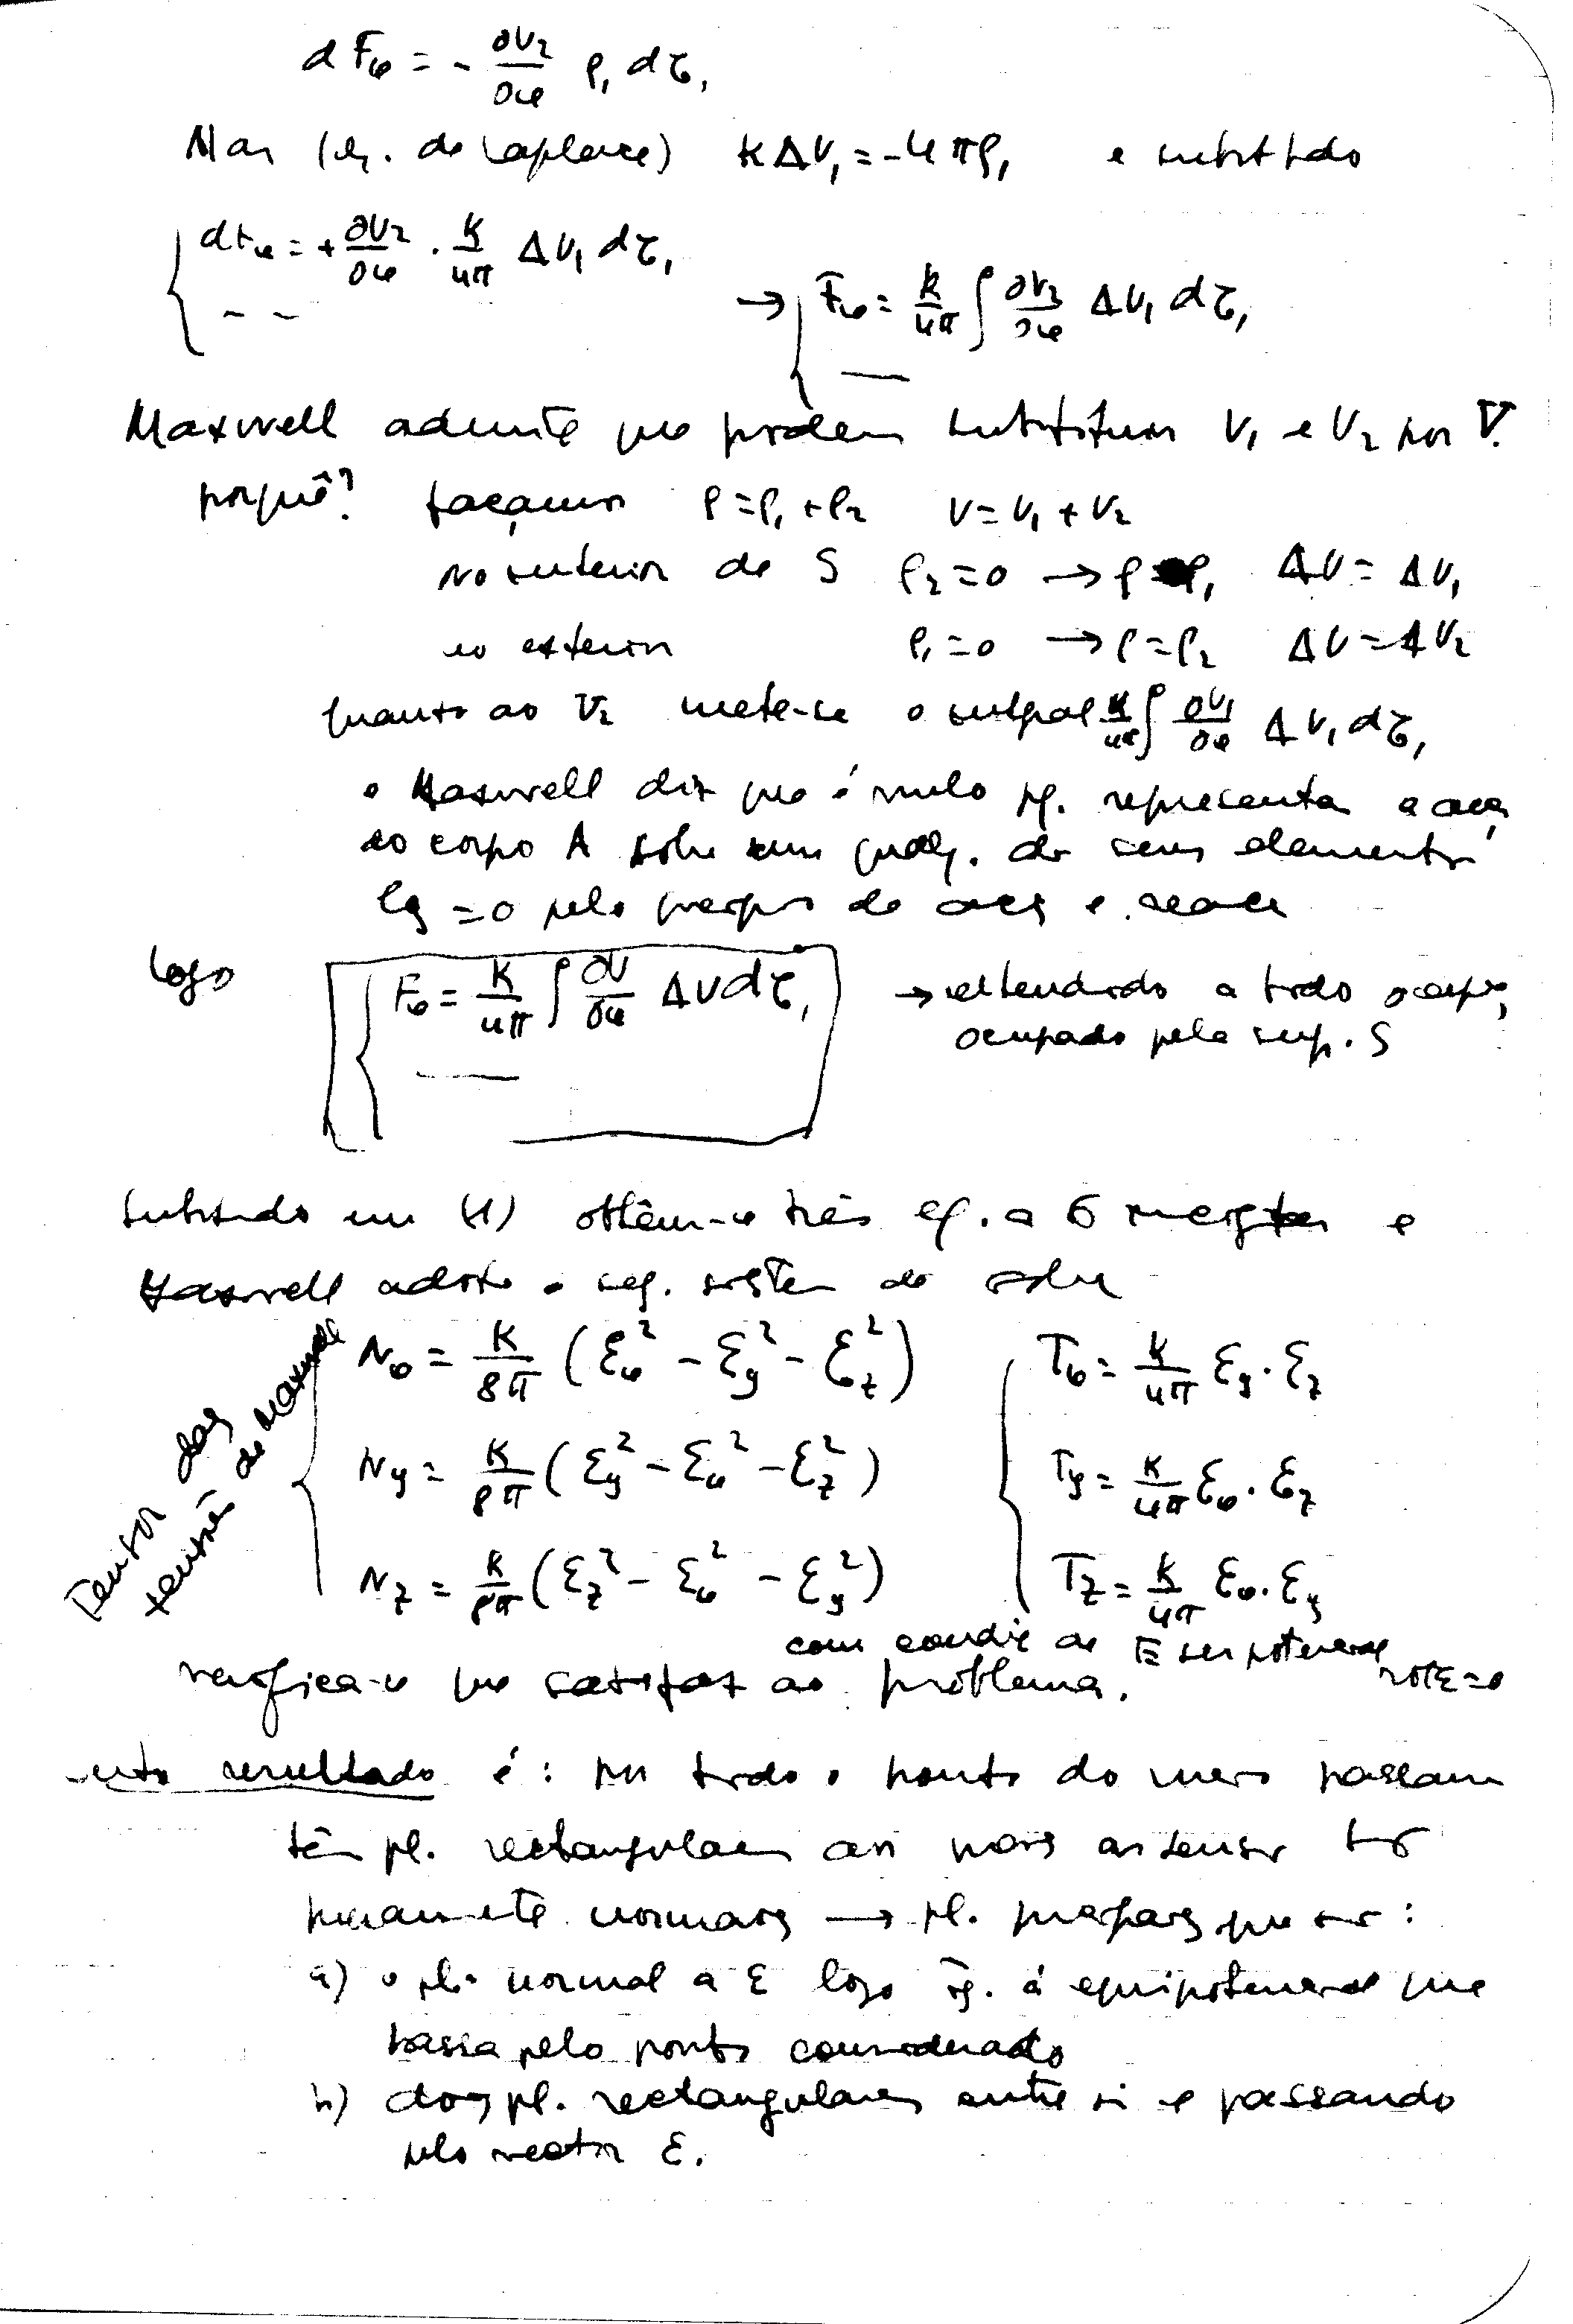 dFx = - ∂V₂/∂x ρ₁ dτ₁
Mas (eq. de Laplace) KΔV₁ = -4πρ₁ e substtdo
dFx = + ∂V₂/∂x · K/4π ΔV₁ dτ₁
→ Fx = K/4π ∫ ∂V₂/∂x ΔV₁ dτ₁
Maxwell admite que podem substituir V₁ e V₂ por V.
porquê? façamos ρ = ρ₁ + ρ₂ V = V₁ + V₂
no interior de S ρ₂ = 0 → ρ = ρ₁ ΔV = ΔV₁
no exterior ρ₁ = 0 → ρ = ρ₂ ΔV = ΔV₂
quanto ao V₂ mete-se o integral K/4π ∫ ∂V₁/∂x ΔV₁ dτ₁
e Maxwell diz que é nulo pq. representa a acç
do corpo A sobre um qualq. dos seus elementos
= 0 pelo de acç e reacç
Logo Fx = K/4π ∫ ∂V/∂x ΔV dτ₁ → extendido a todo o espaço
ocupado pela sup. S
Substndo em (1) obtêm-se três eq. a 6 e
Maxwell adota o seg. sistem de
Tensor das tensões de Maxwell
Nx = K/8π (Ɛx² - Ɛy² - Ɛz²) Tx = K/4π Ɛy · Ɛz
Ny = K/8π (Ɛy² - Ɛx² - Ɛz²) Ty = K/4π Ɛx · Ɛz
Nz = K/8π (Ɛz² - Ɛx² - Ɛy²) Tz = K/4π Ɛx · Ɛy
com condiç de E ser potencial
verifica-se que satisfaz ao problema. rot Ɛ = 0
resultado é: por todo o ponto do meio passam
três pl. rectangulares aos quais as tensões são
puramente normais → pl. principais que são:
a) o pl. normal a Ɛ logo tg. á equipotencial que
passa pelo ponto considerado
b) dois pl. rectangulares entre si e passando
pelo vector Ɛ.